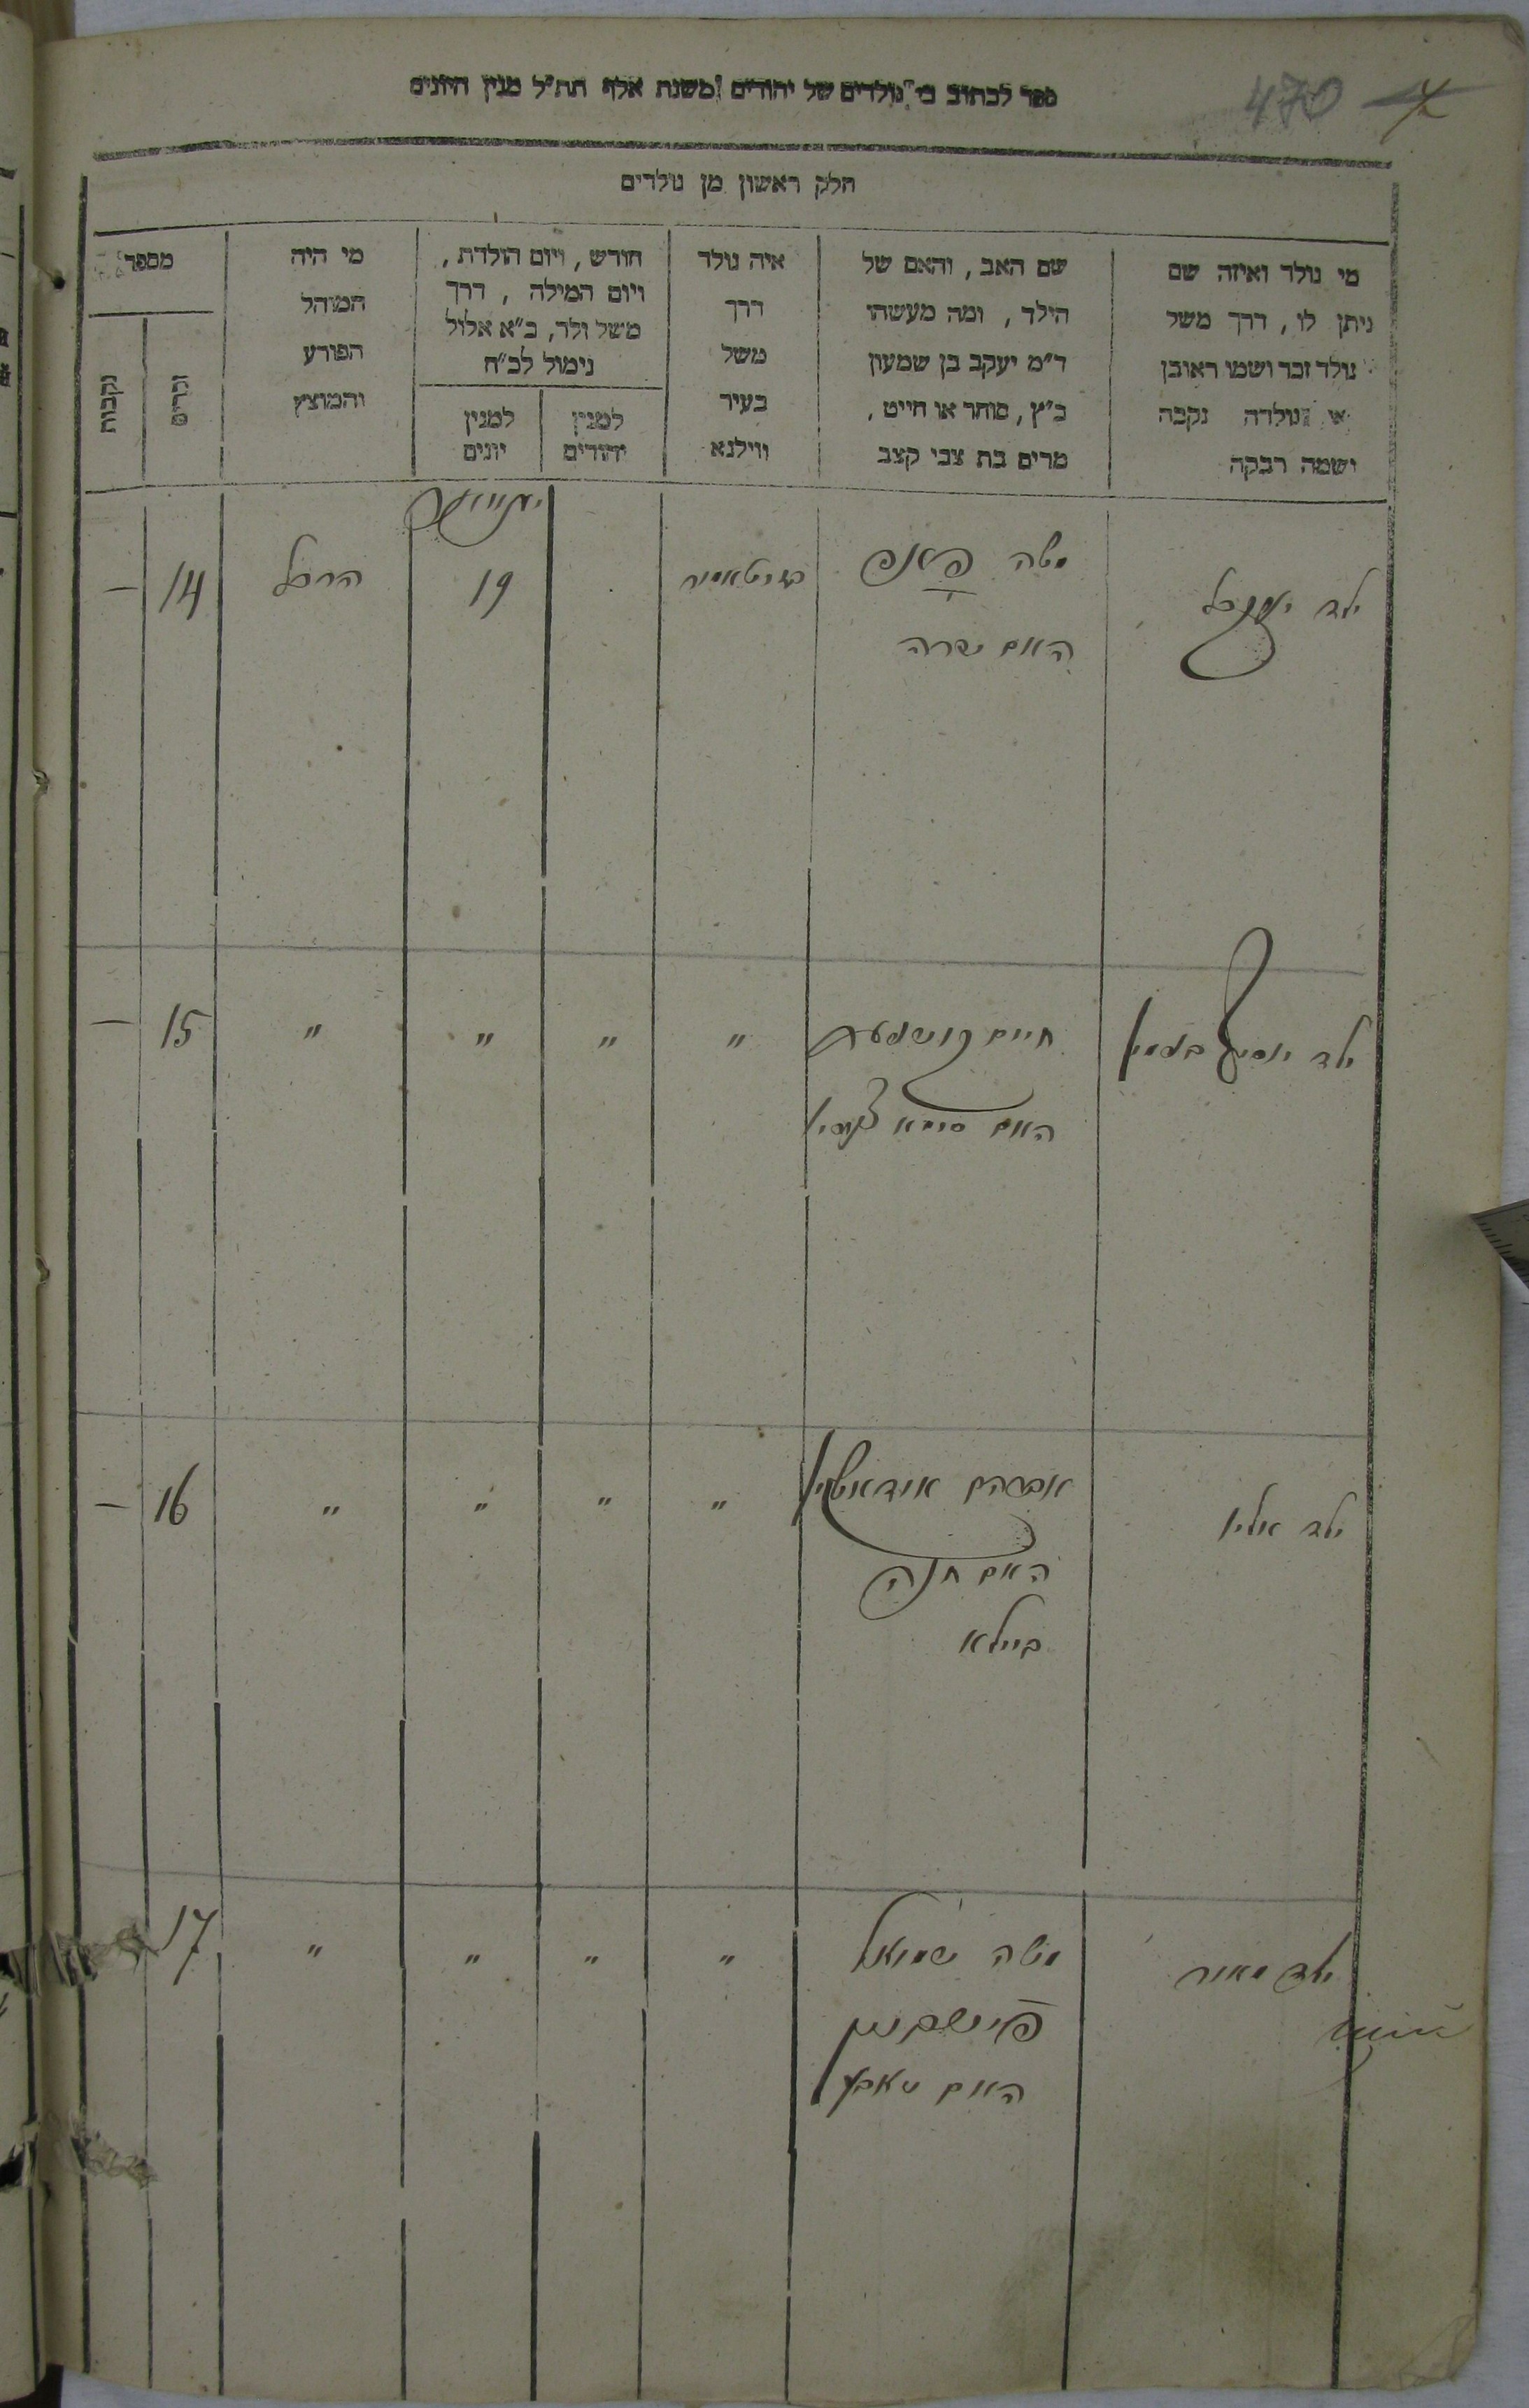 470
ספר לכתוב בו נולדים של יהודים משנת אלף תת"ל מנין היונים
חלק ראשון מן נולדים
מי נולד ואיזה שם
ניתן לו, דרך משל
נולד זכר ושמו ראובן
או נולדה נקבה
ושמה רבקה
שם האב, והאם של
הילד, ומה מעשהו
ד"מ יעקב בן שמעון
כ"ץ, סוחר או חייט,
מרים בת צבי קצב
איה נולד
דרך
משל
בעיר
ווילנא
חודש, ויום הולדת,
ויום המילה, דרך
משל ולד, כ"א אלול
נימול לכ"ח
למנין
יהודים
למנין
יונים
מי היה
המוהל
הפורע
והמוצץ
מספר
זכרים
נקבות
ילד יענכל
משה
האם שרה
19
הנ"ל
14
—
חיים
האם סימא
"
"
"
"
15
—
ילד אליו
אברהם
האם חנה
ביילא
"
"
"
"
16
—
ילד מאיר
משה שמואל
פישקין
האם
"
"
"
"
17